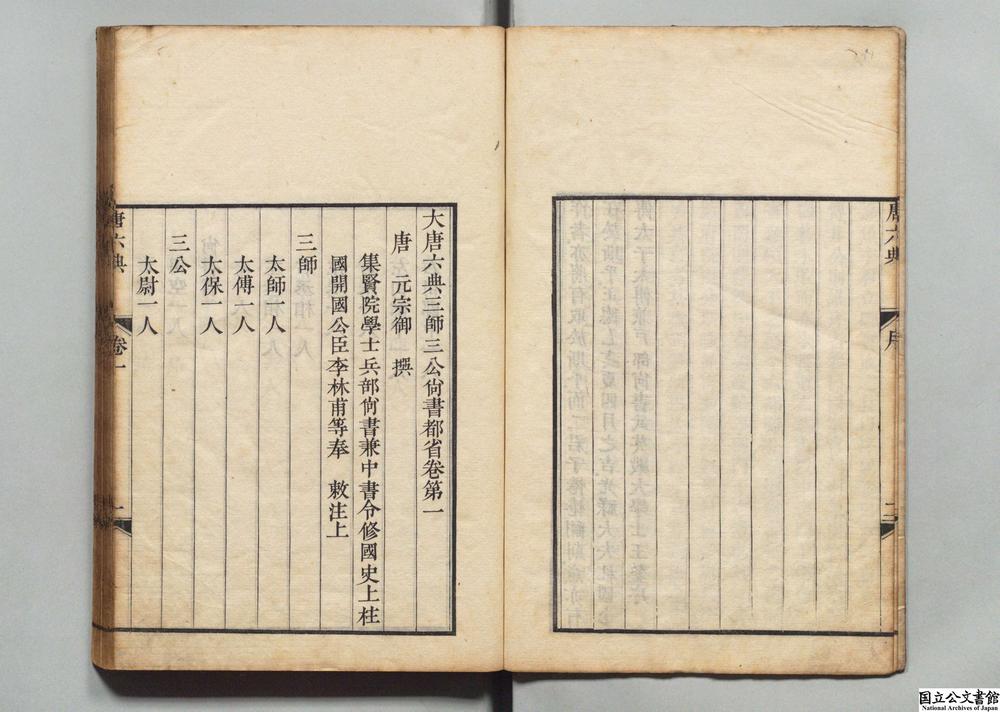 唐六典
序
二
大唐六典三師三公尙書都省卷第一
唐　元宗御　撰
集賢院學士兵部尙書兼中書令修國史上柱
國開國公臣李林甫等奉　敕注上
三師
太師一人
太傅一人
太保一人
三公
太尉一人
唐六典
卷一
一
国立公文書館
National Archives of Japan